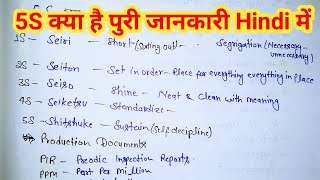 5S क्या है पुरी जानकारी Hindi में
1S — Seiri — Short-(Sorting out) — Segrigation (Necessary-unnecessary)
2S — Seiton — Set in order - Place for everything everything in place
3S — Seiso — Shine — Neat & Clean with meaning
4S — Seiketsu — Standardize —
5S — Shitshuke — Sustain (Self decipline)
Production Documents
PIR — Preodic Inspection Reports.
PPM — Part Per Million